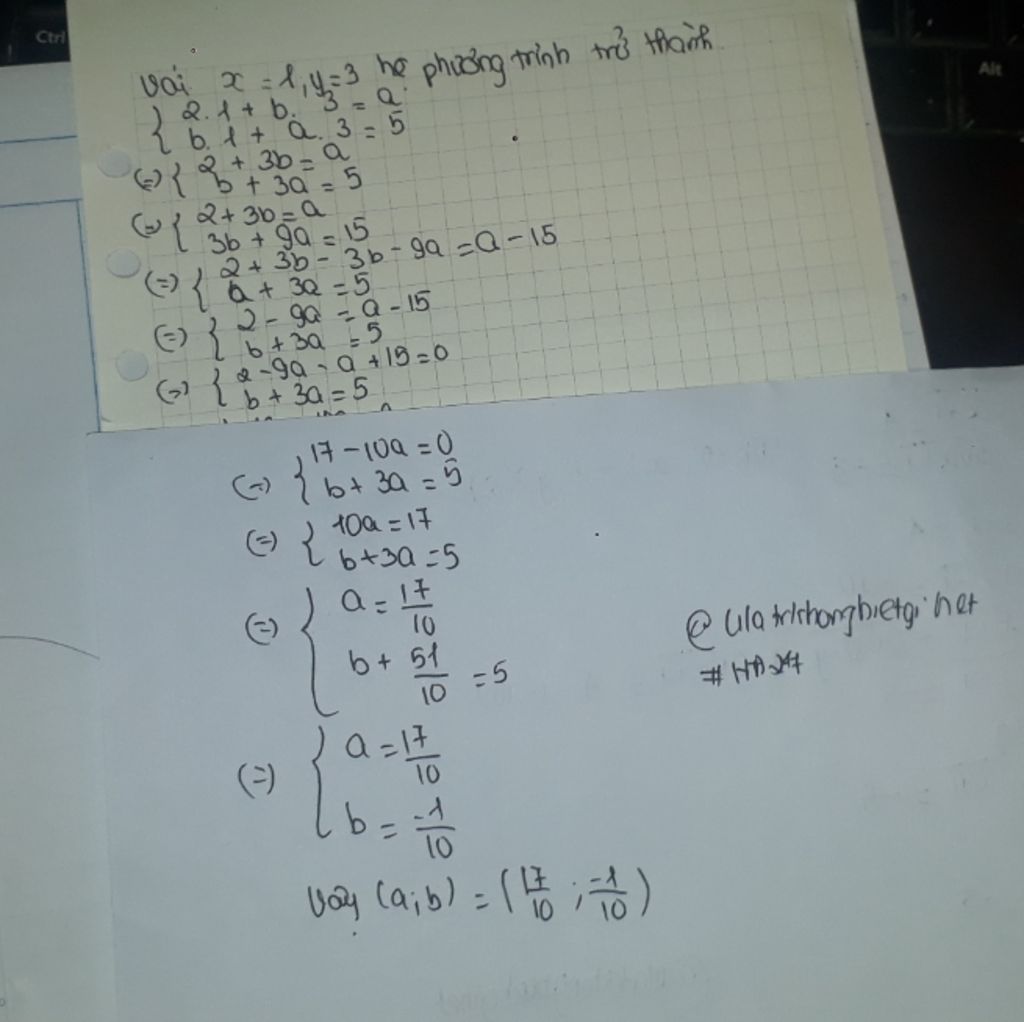 Ctrl
Alt
Với x = 1, y = 3 hệ phương trình trở thành
{ 2.1 + b.3 = a
b.1 + a.3 = 5
(=) { 2 + 3b = a
b + 3a = 5
(=) { 2 + 3b = a
3b + 9a = 15
(=) { 2 + 3b - 3b - 9a = a - 15
b + 3a = 5
(=) { 2 - 9a = a - 15
b + 3a = 5
(=) { 2 - 9a - a + 15 = 0
b + 3a = 5
(=) { 17 - 10a = 0
b + 3a = 5
(=) { 10a = 17
b + 3a = 5
(=) { a = 17/10
b + 51/10 = 5
(=) { a = 17/10
b = -1/10
Vậy (a;b) = (17/10 ; -1/10)